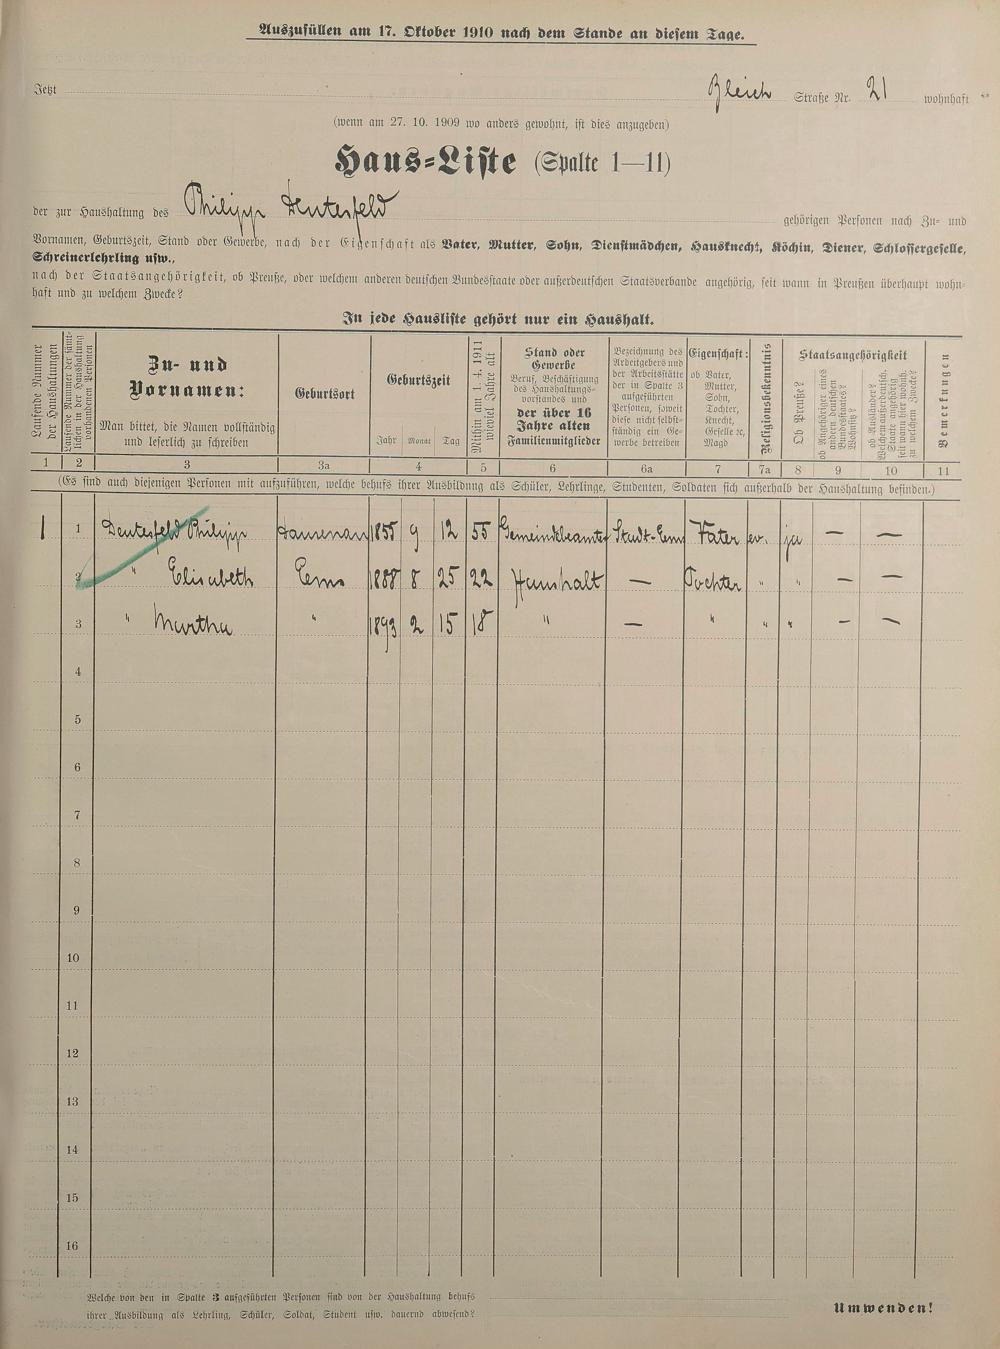 Auszufüllen am 17. Oktober 1910 nach dem Stande an diesem Tage.
Jetzt Bleich Straße Nr. 21 wohnhaft
(wenn am 27. 10. 1909 wo anders gewohnt, ist dies anzugeben)
Haus-Liste (Spalte 1—11)
der zur Haushaltung des Philipp Deutesfeld gehörigen Personen nach Zu- und
Vornamen, Geburtszeit, Stand oder Gewerbe, nach der Eigenschaft als Vater, Mutter, Sohn, Dienstmädchen, Hausknecht, Köchin, Diener, Schlossergeselle,
Schreinerlehrling usw.,
nach der Staatsangehörigkeit, ob Preuße, oder welchem anderen deutschen Bundesstaate oder außerdeutschen Staatsverbande angehörig, seit wann in Preußen überhaupt wohn-
haft und zu welchem Zwecke?
In jede Hausliste gehört nur ein Haushalt.
Laufende Nummer der Haushaltungen
Laufende Nummer der sämt-
lichen in der Haushaltung
vorhandenen Personen
Zu- und
Vornamen:
Man bittet, die Namen vollständig
und leserlich zu schreiben
Geburtsort
Geburtszeit
Jahr Monat Tag
Mithin am 1. 4. 1911
wieviel Jahre alt
Stand oder
Gewerbe
Beruf, Beschäftigung
des Haushaltungs-
vorstandes und
der über 16
Jahre alten
Familienmitglieder
Bezeichnung des
Arbeitgebers und
der Arbeitsstätte
der in Spalte 3
aufgeführten
Personen, soweit
diese nicht selbst-
ständig ein Ge-
werbe betreiben
Eigenschaft:
ob Vater,
Mutter,
Sohn,
Tochter,
Knecht,
Geselle ꝛc,
Magd
Religionsbekenntnis
Staatsangehörigkeit
Ob Preuße?
ob Angehöriger eines
andern deutschen
Bundesstaates?
Wohnsitz?
ob Ausländer?
Welchem außerdeutsch.
Staate angehörig
seit wann hier wohnh.
zu welchem Zwecke?
Bemerkungen
1 2 3 3a 4 5 6 6a 7 7a 8 9 10 11
(Es sind auch diejenigen Personen mit aufzuführen, welche behufs ihrer Ausbildung als Schüler, Lehrlinge, Studenten, Soldaten sich außerhalb der Haushaltung befinden.)
1 1 Deutesfeld Philipp Dausenau 1855 9 12 55 Gemeindebeamter Stadt-Ems Vater ev. ja — —
2 " Elisabeth Ems 1888 8 25 22 Haushalt — Tochter " " — —
3 " Martha " 1893 2 15 18 " — " " " — —
4
5
6
7
8
9
10
11
12
13
14
15
16
Welche von den in Spalte 3 aufgeführten Personen sind von der Haushaltung behufs
ihrer Ausbildung als Lehrling, Schüler, Soldat, Student usw. dauernd abwesend?
Umwenden!